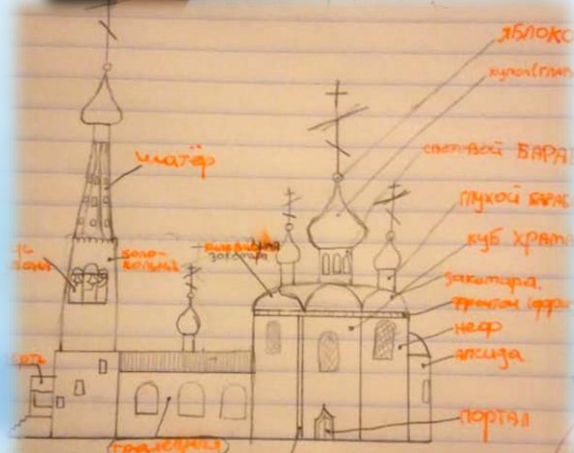 яблоко
купол(глав
световой БАРАБ
шатёр
глухой БАРАБ
куб храма
закомара.
неф
апсида
портал
коло-
кольня
закомара
трапезная